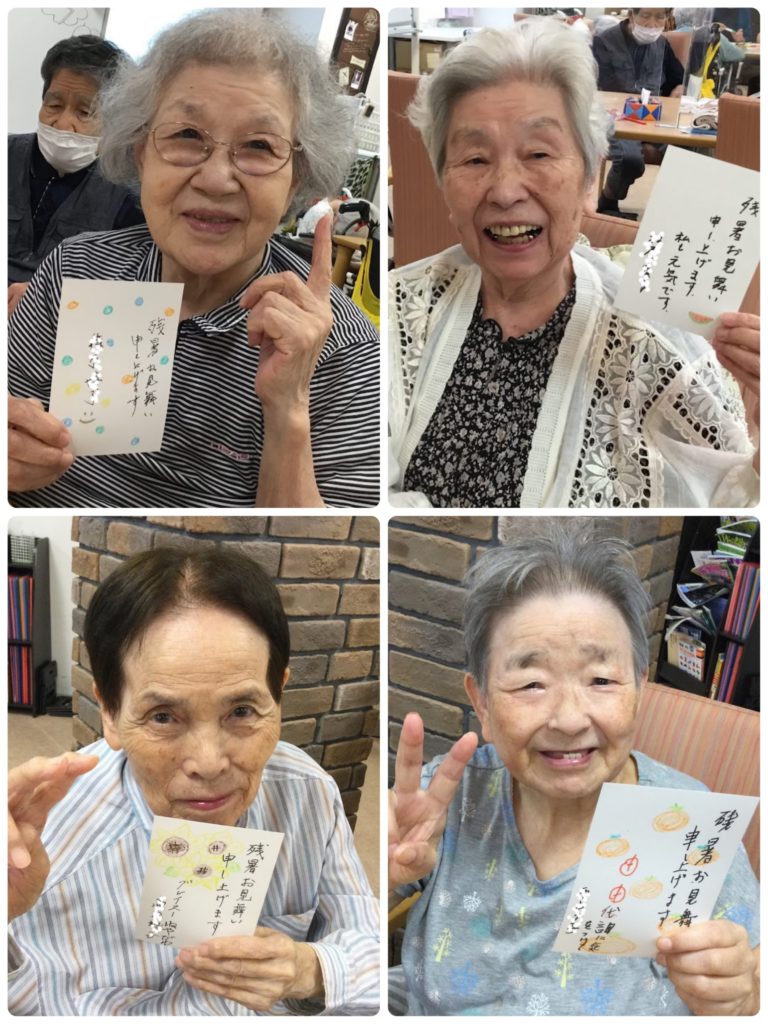 残暑お見舞い
申し上げます
残暑お見舞い
申し上げます
私も元気です。
残暑お見舞い
申し上げます
残暑お見舞い
申し上げます